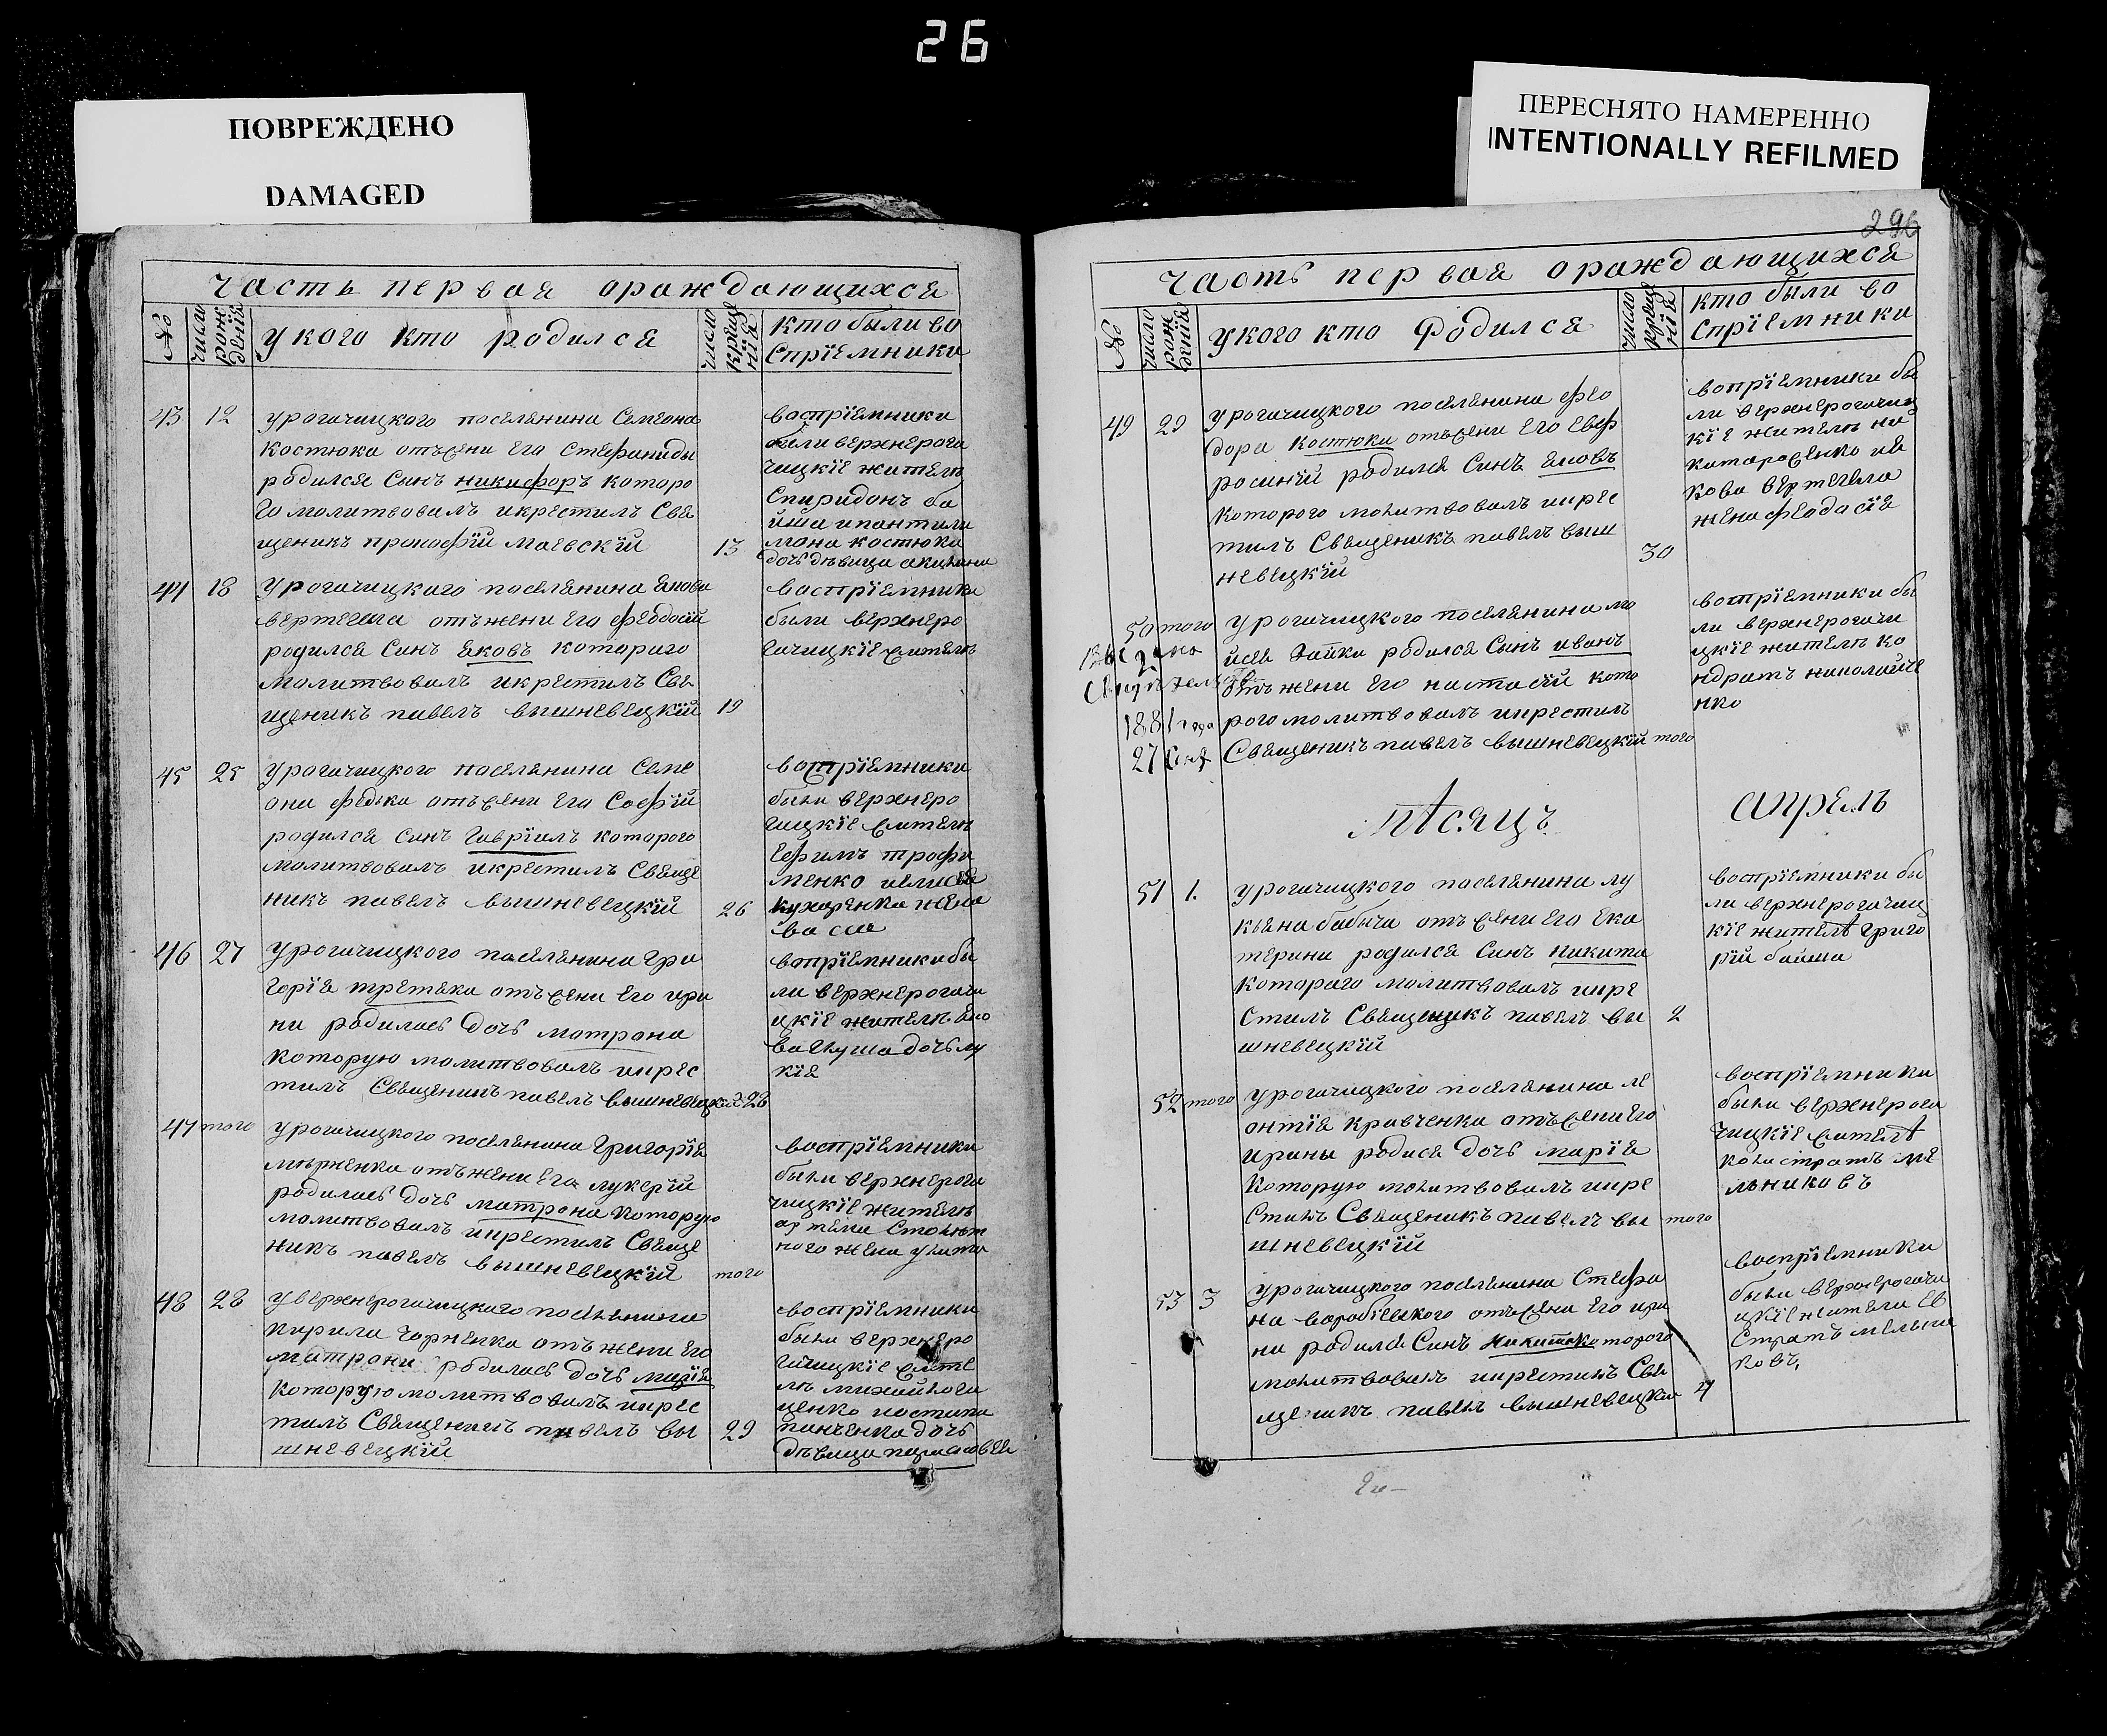 26
ПОВРЕЖДЕНО
DAMAGED
ПЕРЕСНЯТО НАМЕРЕННО
INTENTIONALLY REFILMED
часть первая ораждающихся
№
число рож денїя
у кого кто родился
число креще нїя
кто были во
спрїемники
43 12
урогачицкого поселянина Семеона
костюка отъ жени его Стефаниды
родился Синъ никифоръ которо
го молитвовалъ икрестилъ Свя
щеникъ прокофїй маевскїй 13
воспрїемники
были верхнерога
чицкїе жителѣ
Спиридонъ ба
йша и пантили
мона костюка
дочь дѣвица
44 18
урогачицкого поселянина якова
вертегела отъ жени его феодосїи
родился Синъ яковъ которого
молитвовалъ икрестилъ Свя
щеникъ павелъ вышневецкїй 19
воспрїемники
были верхнеро
гачицкїе жителѣ
45 25
урогачицкого поселянина Семе
она федька отъ жени его Софїй
родился Синъ Гаврїилъ которого
молитвовалъ икрестилъ Свяще
никъ павелъ вышневецкїй 26
воспрїемники
были верхнеро
гицкїе жителѣ
Ефимъ трофи
менко
кухаренка жена
46 27
урогачицкого поселянина гри
горїя третяка отъ жени его ири
ни родилась дочь матрона
которую молитвовалъ икрес
тилъ Священикъ павелъ вышневецкїй 28
вопрїемники бы
ли верхнерогачи
цкїе жителѣ яко
ва дочь лу
кїя
47 того
урогачицкого поселянина Григорїя
отъ жени его лукерїй
родилась дочь матрона которую
молитвовалъ икрестилъ Свяще
никъ павелъ вышневецкїй того
воспрїемники
были верхнерога
чицкїе жителѣ
артема
ного жена
48 28
уверхнерогачицкаго поселянина
кирила Чорненка отъ жени его
матрони родилась дочь марїя
которую молитвовалъ икрес
тилъ Священикъ павелъ вы 29
шневецкїй
воспрїемники
были верхнеро
гачицкїе жите
лѣ
ценко
панченка дочь
дѣвица
296
часть первая ораждающихся
№
число рож денїя
укого кто родился
число креще нїя
кто были во
спрїемники
49 29
урогачицкого поселянина фео
дора костюка отъ жени его Евф
росинїй родился Синъ яковъ
которого молитвовалъ икрес
тилъ Священикъ павелъ выш 30
невецкїй
вопрїемники бы
ли верхнерогачиц
кїе жителѣ ни
кова вертегела
жена феодосїя
50 того
урогачицкого поселянина мо
йсея Зайка родился Сынъ иванъ
отъ жени его настасїй кото
рого молитвовалъ икрестилъ
Священикъ павелъ вышневецкїй того
1881 года
27
вотрїемники бы
ли верхнерогачи
цкїе жителѣ ко
ндратъ николайче
нко
мѣсяцъ апрель
51 1.
урогачицкого поселянина лу
кьяна бабыча отъ жени его Ека
терини родился Синъ никита
которого молитвовалъ икре
стилъ Священикъ павелъ вы 2
шневецкїй
воспрїемники бы
ли верхнерогачиц
кїе жителѣ григо
рїй байша
52 того
урогачицкого поселянина ле
онтїя кравченка отъ жени его
ирины родися дочь марїя
которую молитвовалъ икре
стилъ Священикъ павелъ вы того
шневецкїй
воспрїемники
были верхнерога
чицкїе жителѣ
калистратъ ме
льниковъ
53 3
урогачицкого поселянина Стефа
на воробїевского отъ жени его ири
ни родился Синъ никита которого
молитвовалъ икрестилъ Свя
щеникъ павелъ вышневецкїй 4
воспрїемники
были верхнерогачи
цкїе жители Ев
стратъ мельни
ковъ,